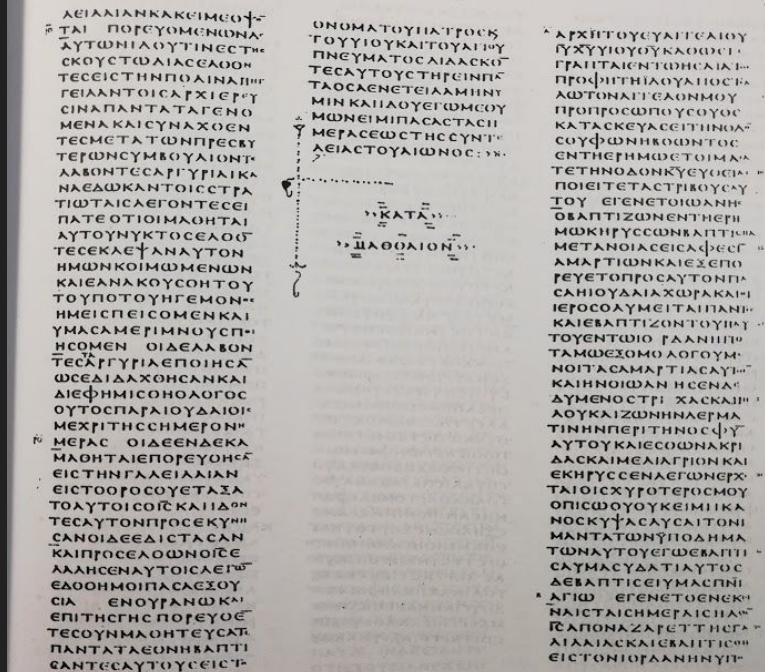 ΛΕΙΛΑΙΑΝΚΑΚΕΙΜΕΟΨΟ̅
ΤΑΙ ΠΟΡΕΥΟΜΕΝΩΝΔΕ
ΑΥΤΩΝΙΔΟΥΤΙΝΕϹΤΗ
ϹΚΟΥϹΤΩΔΙΑϹΕΛΘΟΝ
ΤΕϹΕΙϹΤΗΝΠΟΛΙΝΑΠΗΓ
ΓΕΙΛΑΝΤΟΙϹΑΡΧΙΕΡΕΥ
ϹΙΝΑΠΑΝΤΑΤΑΓΕΝΟ
ΜΕΝΑΚΑΙϹΥΝΑΧΘΕΝ
ΤΕϹΜΕΤΑΤΩΝΠΡΕϹΒΥ
ΤΕΡΩΝϹΥΜΒΟΥΛΙΟΝΤΕ
ΛΑΒΟΝΤΕϹΑΡΓΥΡΙΑΙΚΑ
ΝΑΕΔΩΚΑΝΤΟΙϹϹΤΡΑ
ΤΙΩΤΑΙϹΛΕΓΟΝΤΕϹΕΙ
ΠΑΤΕΟΤΙΟΙΜΑΘΗΤΑΙ
ΑΥΤΟΥΝΥΚΤΟϹΕΛΘΟ̅
ΤΕϹΕΚΛΕΨΑΝΑΥΤΟΝ
ΗΜΩΝΚΟΙΜΩΜΕΝΩΝ
ΚΑΙΕΑΝΑΚΟΥϹΘΗΤΟΥ
ΤΟΥΠΟΤΟΥΗΓΕΜΟΝΟϹ
ΗΜΕΙϹΠΕΙϹΟΜΕΝΚΑΙ
ΥΜΑϹΑΜΕΡΙΜΝΟΥϹΠΟΙ
ΗϹΟΜΕΝ ΟΙΔΕΛΑΒΟΝ
ΤΕϹΤΑΑΡΓΥΡΙΑΕΠΟΙΗϹΑ̅
ΩϹΕΔΙΔΑΧΘΗϹΑΝΚΑΙ
ΔΙΕΦΗΜΙϹΘΗΟΛΟΓΟϹ
ΟΥΤΟϹΠΑΡΑΙΟΥΔΑΙΟΙϹ
ΜΕΧΡΙΤΗϹϹΗΜΕΡΟΝΗ
ΜΕΡΑϹ ΟΙΔΕΕΝΔΕΚΑ
ΜΑΘΗΤΑΙΕΠΟΡΕΥΘΗϹΑ̅
ΕΙϹΤΗΝΓΑΛΕΙΛΑΙΑΝ
ΕΙϹΤΟΟΡΟϹΟΥΕΤΑΞΑ
ΤΟΑΥΤΟΙϹΟΙ̅Ϲ̅ΚΑΙΙΔΟΝ
ΤΕϹΑΥΤΟΝΠΡΟϹΕΚΥΝΗ
ϹΑΝΟΙΔΕΕΔΙϹΤΑϹΑΝ
ΚΑΙΠΡΟϹΕΛΘΩΝΟΙ̅Ϲ̅Ε
ΛΑΛΗϹΕΝΑΥΤΟΙϹΛΕΓΩ̅
ΕΔΟΘΗΜΟΙΠΑϹΑΕΞΟΥ
ϹΙΑ ΕΝΟΥΡΑΝΩΚΑΙ
ΕΠΙΤΗϹΓΗϹ ΠΟΡΕΥΘΕ̅
ΤΕϹΟΥΝΜΑΘΗΤΕΥϹΑΤΕ
ΠΑΝΤΑΤΑΕΘΝΗΒΑΠΤΙ
ϹΑΝΤΕϹΑΥΤΟΥϹΕΙϹΤΟ
ΟΝΟΜΑΤΟΥΠΑΤΡΟϹΚ
ΤΟΥΥΙΟΥΚΑΙΤΟΥΑΓΙΟΥ
ΠΝΕΥΜΑΤΟϹΔΙΔΑϹΚΟ̅
ΤΕϹΑΥΤΟΥϹΤΗΡΕΙΝΠΑ̅
ΤΑΟϹΑΕΝΕΤΕΙΛΑΜΗΝΥ
ΜΙΝΚΑΙΙΔΟΥΕΓΩΜΕΘΥ
ΜΩΝΕΙΜΙΠΑϹΑϹΤΑϹΗ
ΜΕΡΑϹΕΩϹΤΗϹϹΥΝΤΕ
ΛΕΙΑϹΤΟΥΑΙΩΝΟϹ:
ΚΑΤΑ
ΜΑΘΘΑΙΟΝ
ΑΡΧΗΤΟΥΕΥΑΓΓΕΛΙΟΥ
Ι̅Υ̅Χ̅Υ̅ΥΙΟΥΘ̅Υ̅ΚΑΘΩϹΓΕ
ΓΡΑΠΤΑΙΕΝΤΩΗϹΑΙΑΤΩ
ΠΡΟΦΗΤΗΙΔΟΥΑΠΟϹΤΕΛ
ΛΩΤΟΝΑΓΓΕΛΟΝΜΟΥ
ΠΡΟΠΡΟϹΩΠΟΥϹΟΥΟϹ
ΚΑΤΑϹΚΕΥΑϹΕΙΤΗΝΟΔΟ̅
ϹΟΥΦΩΝΗΒΟΩΝΤΟϹ
ΕΝΤΗΕΡΗΜΩΕΤΟΙΜΑϹΑ
ΤΕΤΗΝΟΔΟΝΚ̅Υ̅ΕΥΘΕΙΑϹ
ΠΟΙΕΙΤΕΤΑϹΤΡΙΒΟΥϹΑΥ
ΤΟΥ ΕΓΕΝΕΤΟΙΩΑΝΗϹ
ΟΒΑΠΤΙΖΩΝΕΝΤΗΕΡΗ
ΜΩΚΗΡΥϹϹΩΝΒΑΠΤΙϹΜΑ
ΜΕΤΑΝΟΙΑϹΕΙϹΑΦΕϹΙΝ
ΑΜΑΡΤΙΩΝΚΑΙΕΞΕΠΟ
ΡΕΥΕΤΟΠΡΟϹΑΥΤΟΝΠΑ
ϹΑΗΙΟΥΔΑΙΑΧΩΡΑΚΑΙΟΙ
ΙΕΡΟϹΟΛΥΜΕΙΤΑΙΠΑΝΤΕϹ
ΚΑΙΕΒΑΠΤΙΖΟΝΤΟΥΠΑΥ
ΤΟΥΕΝΤΩΙΟΡΔΑΝΗΠΟ
ΤΑΜΩΕΞΟΜΟΛΟΓΟΥΜΕ
ΝΟΙΤΑϹΑΜΑΡΤΙΑϹΑΥΤΩ̅
ΚΑΙΗΝΟΙΩΑΝΗϹΕΝΔΕ
ΔΥΜΕΝΟϹΤΡΙΧΑϹΚΑΜΗ
ΛΟΥΚΑΙΖΩΝΗΝΔΕΡΜΑ
ΤΙΝΗΝΠΕΡΙΤΗΝΟϹΦΥ̅
ΑΥΤΟΥΚΑΙΕϹΘΩΝΑΚΡΙ
ΔΑϹΚΑΙΜΕΛΙΑΓΡΙΟΝΚΑΙ
ΕΚΗΡΥϹϹΕΝΛΕΓΩΝΕΡΧΕ
ΤΑΙΟΙϹΧΥΡΟΤΕΡΟϹΜΟΥ
ΟΠΙϹΩΟΥΟΥΚΕΙΜΙΙΚΑ
ΝΟϹΚΥΨΑϹΛΥϹΑΙΤΟΝΙ
ΜΑΝΤΑΤΩΝΥΠΟΔΗΜΑ
ΤΩΝΑΥΤΟΥΕΓΩΕΒΑΠΤΙ
ϹΑΥΜΑϹΥΔΑΤΙΑΥΤΟϹ
ΔΕΒΑΠΤΙϹΕΙΥΜΑϹΠ̅Ν̅Ι̅
ΑΓΙΩ ΕΓΕΝΕΤΟΕΝΕΚΕΙ
ΝΑΙϹΤΑΙϹΗΜΕΡΑΙϹΗΛΘΕ̅
Ι̅Ϲ̅ΑΠΟΝΑΖΑΡΕΤΤΗϹΓΑ
ΛΙΛΑΙΑϹΚΑΙΕΒΑΠΤΙϹΘΗ
ΕΙϹΤΟΝΙΟΡΔΑΝΗΝΥΠΟ